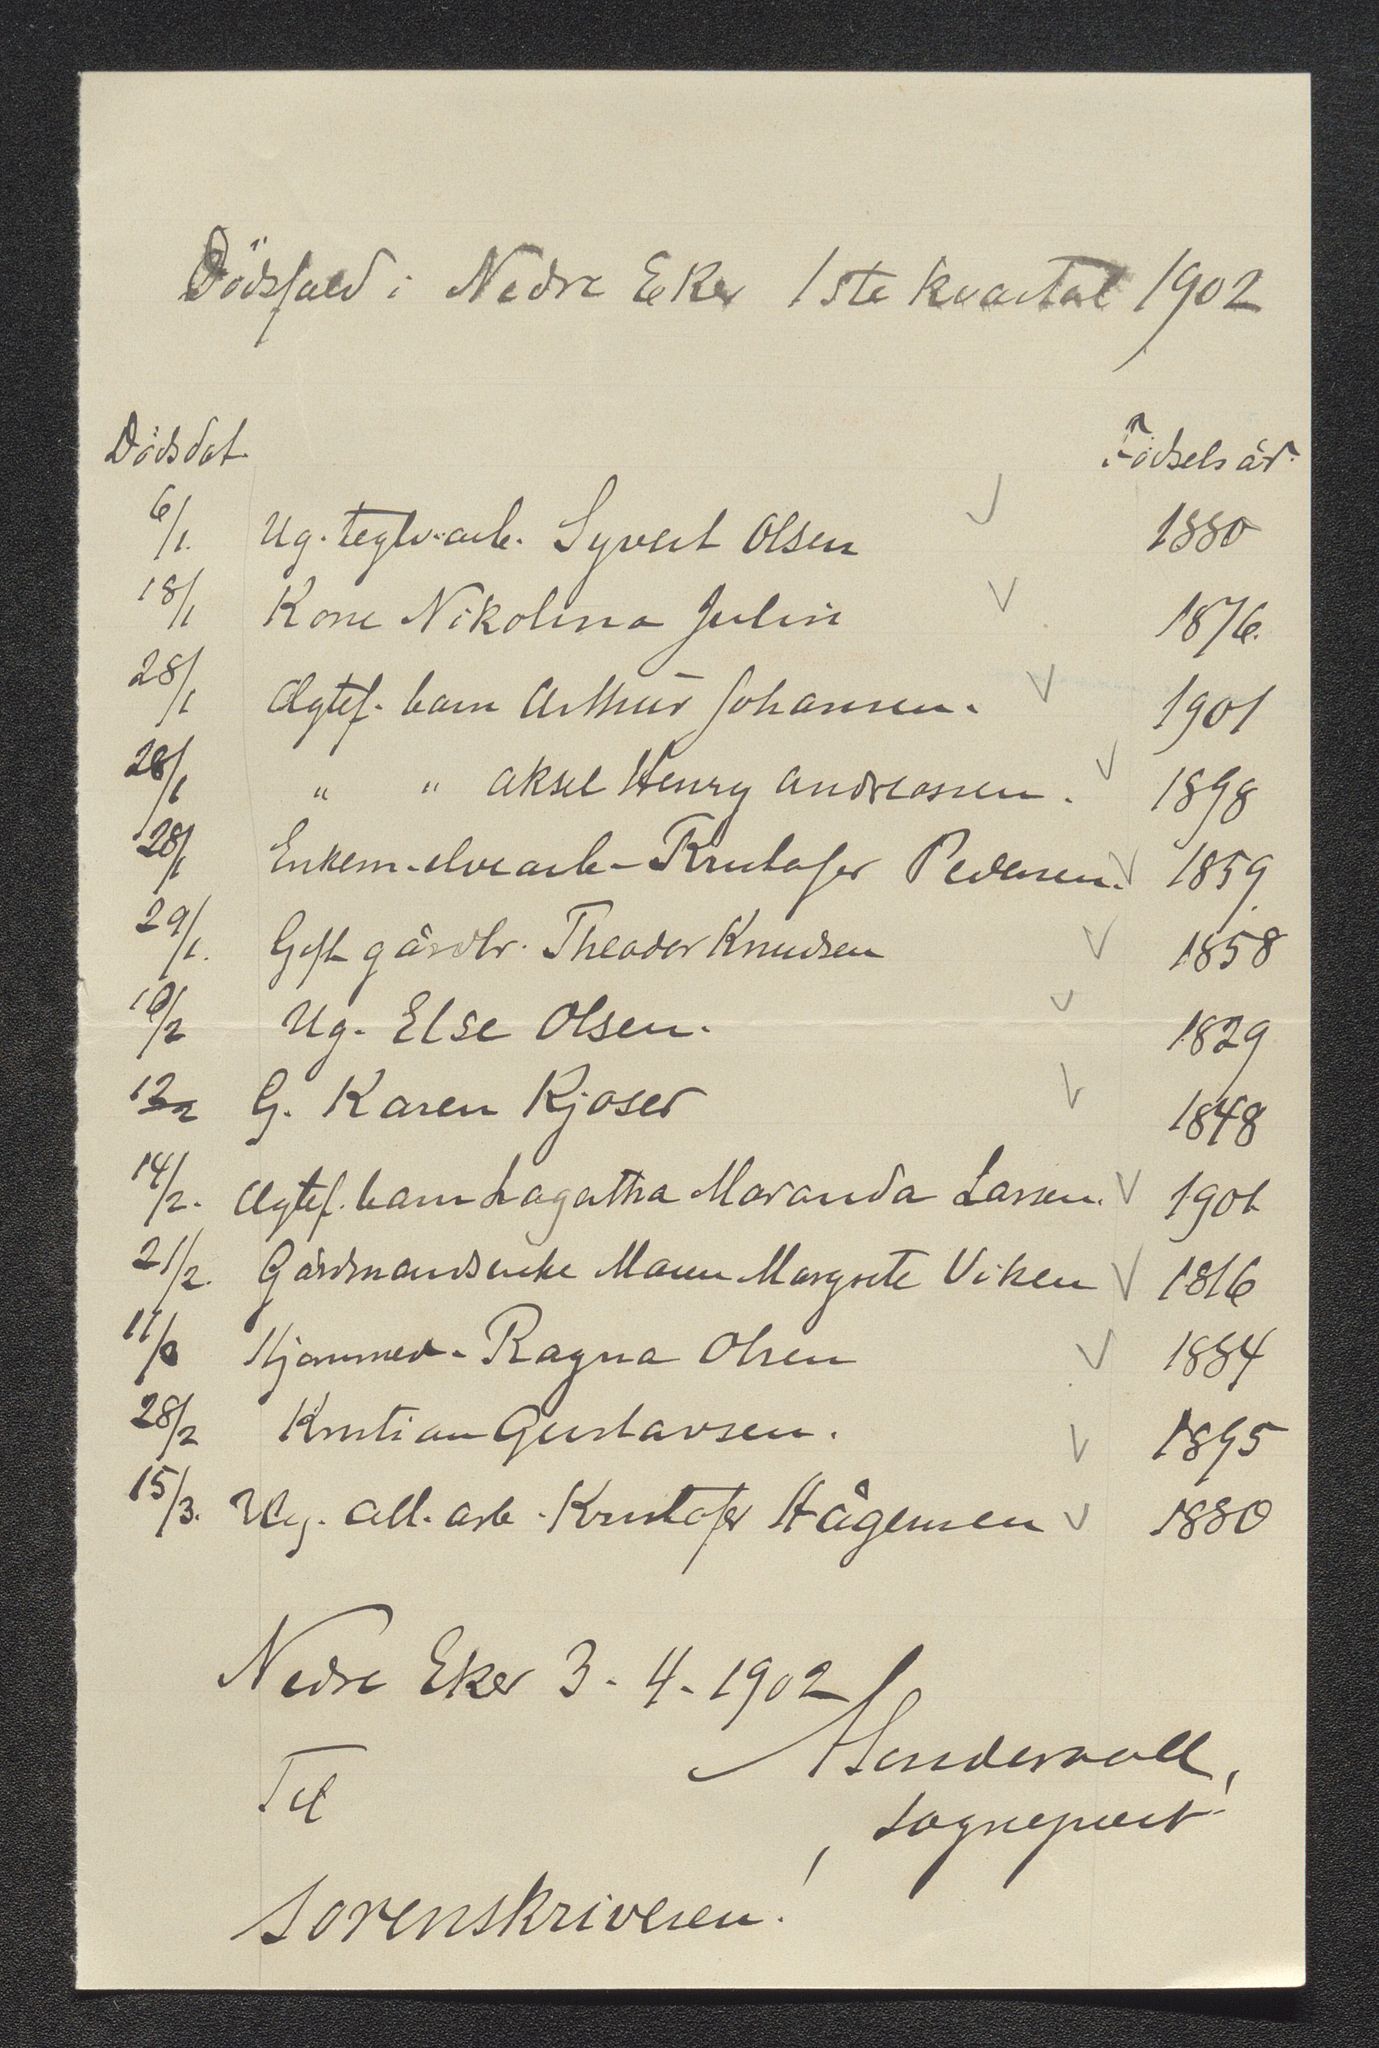 Dödsfald i Nedre Eker 1ste kvartal 1902
Dödsdat. Födselsår.
6/1. Ug. teglv.arb. Syvert Olsen 1880
18/1 Kone Nikolina Julin 1876.
28/1 Ægtef. barn Arthur Johansen. 1901
28/1 " " Aksel Henry Andreassen. 1898
28/1 Enkem. elvearb. Kristofer Pedersen. 1859
29/1. Gift gårdbr. Theodor Knudsen 1858
10/2 Ug. Else Olsen. 1829
12/2 G. Karen Kjøser 1848
14/2. Ægtef. barn Lagertha Maranda Larsen. 1901
21/2. Gårdmandsenke Maren Margrete Viken 1816
11/ Hjemmev. Ragna Olsen 1884
28/2 Kristian Gustavsen. 1895
15/3. Ug. cell. arb. Kristofer Hågensen 1880
Nedre Eker 3-4-1902
Til
sogneprest
sorenskriveren!